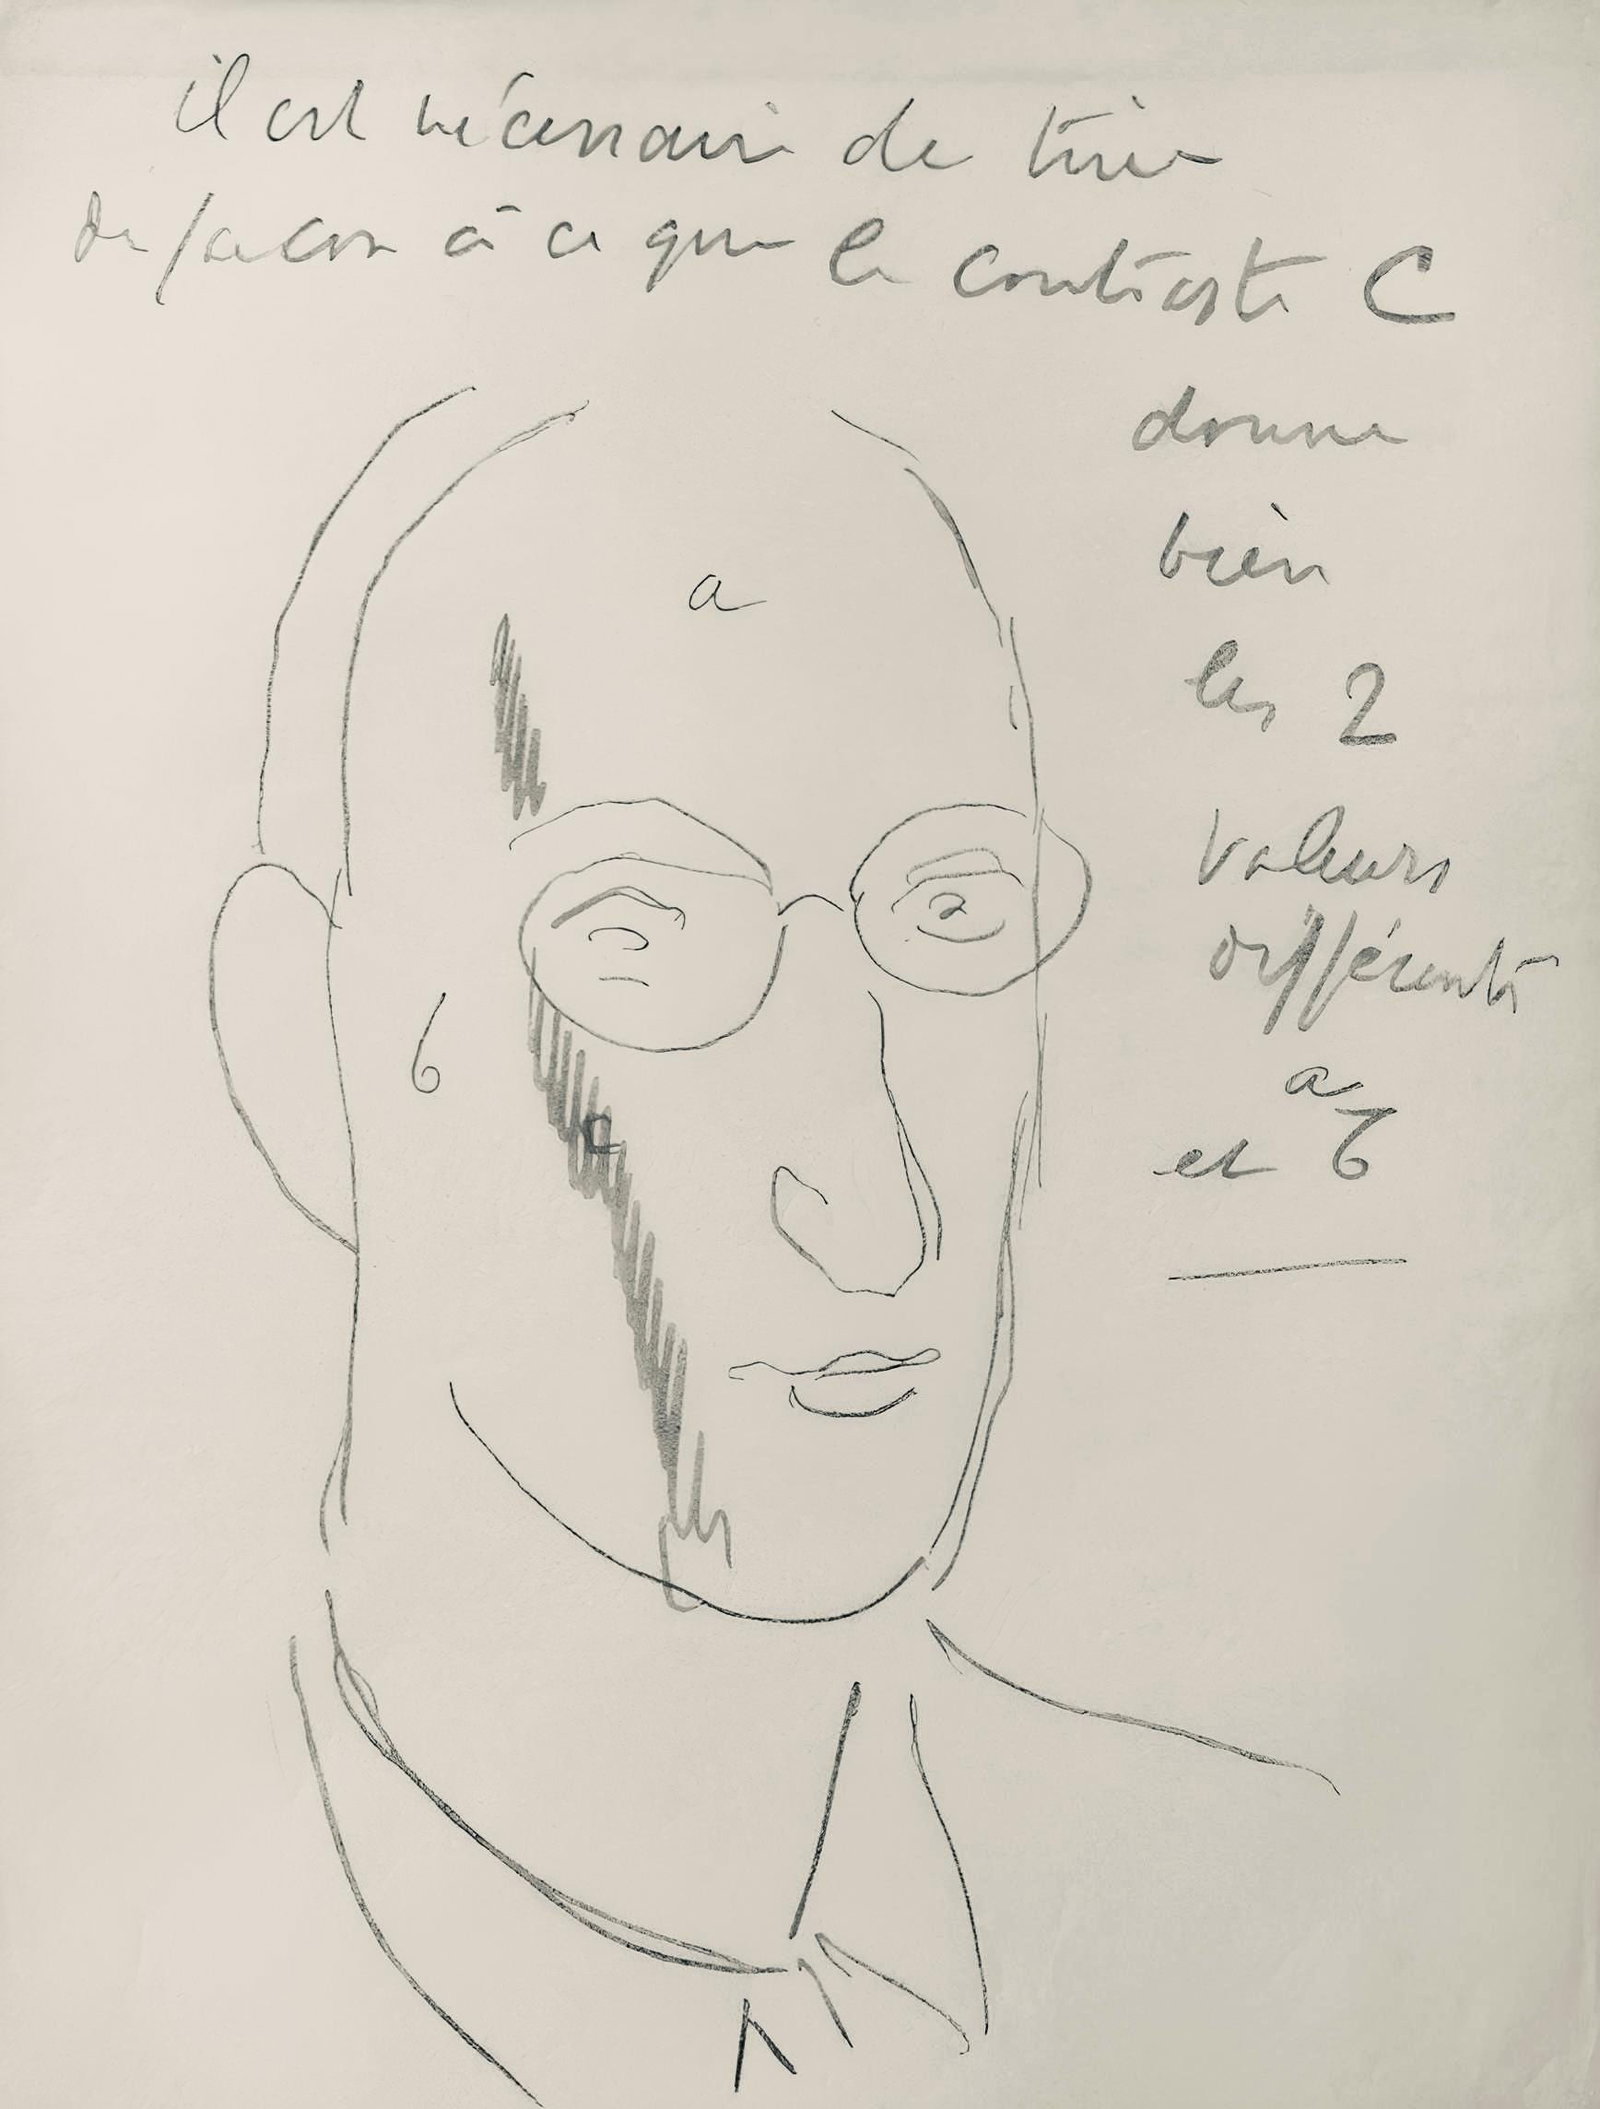 il est nécessaire de tirer
de facon à ce que le contraste C
donne
bien
les 2
valeurs
différentes
a
et b
a
b
c